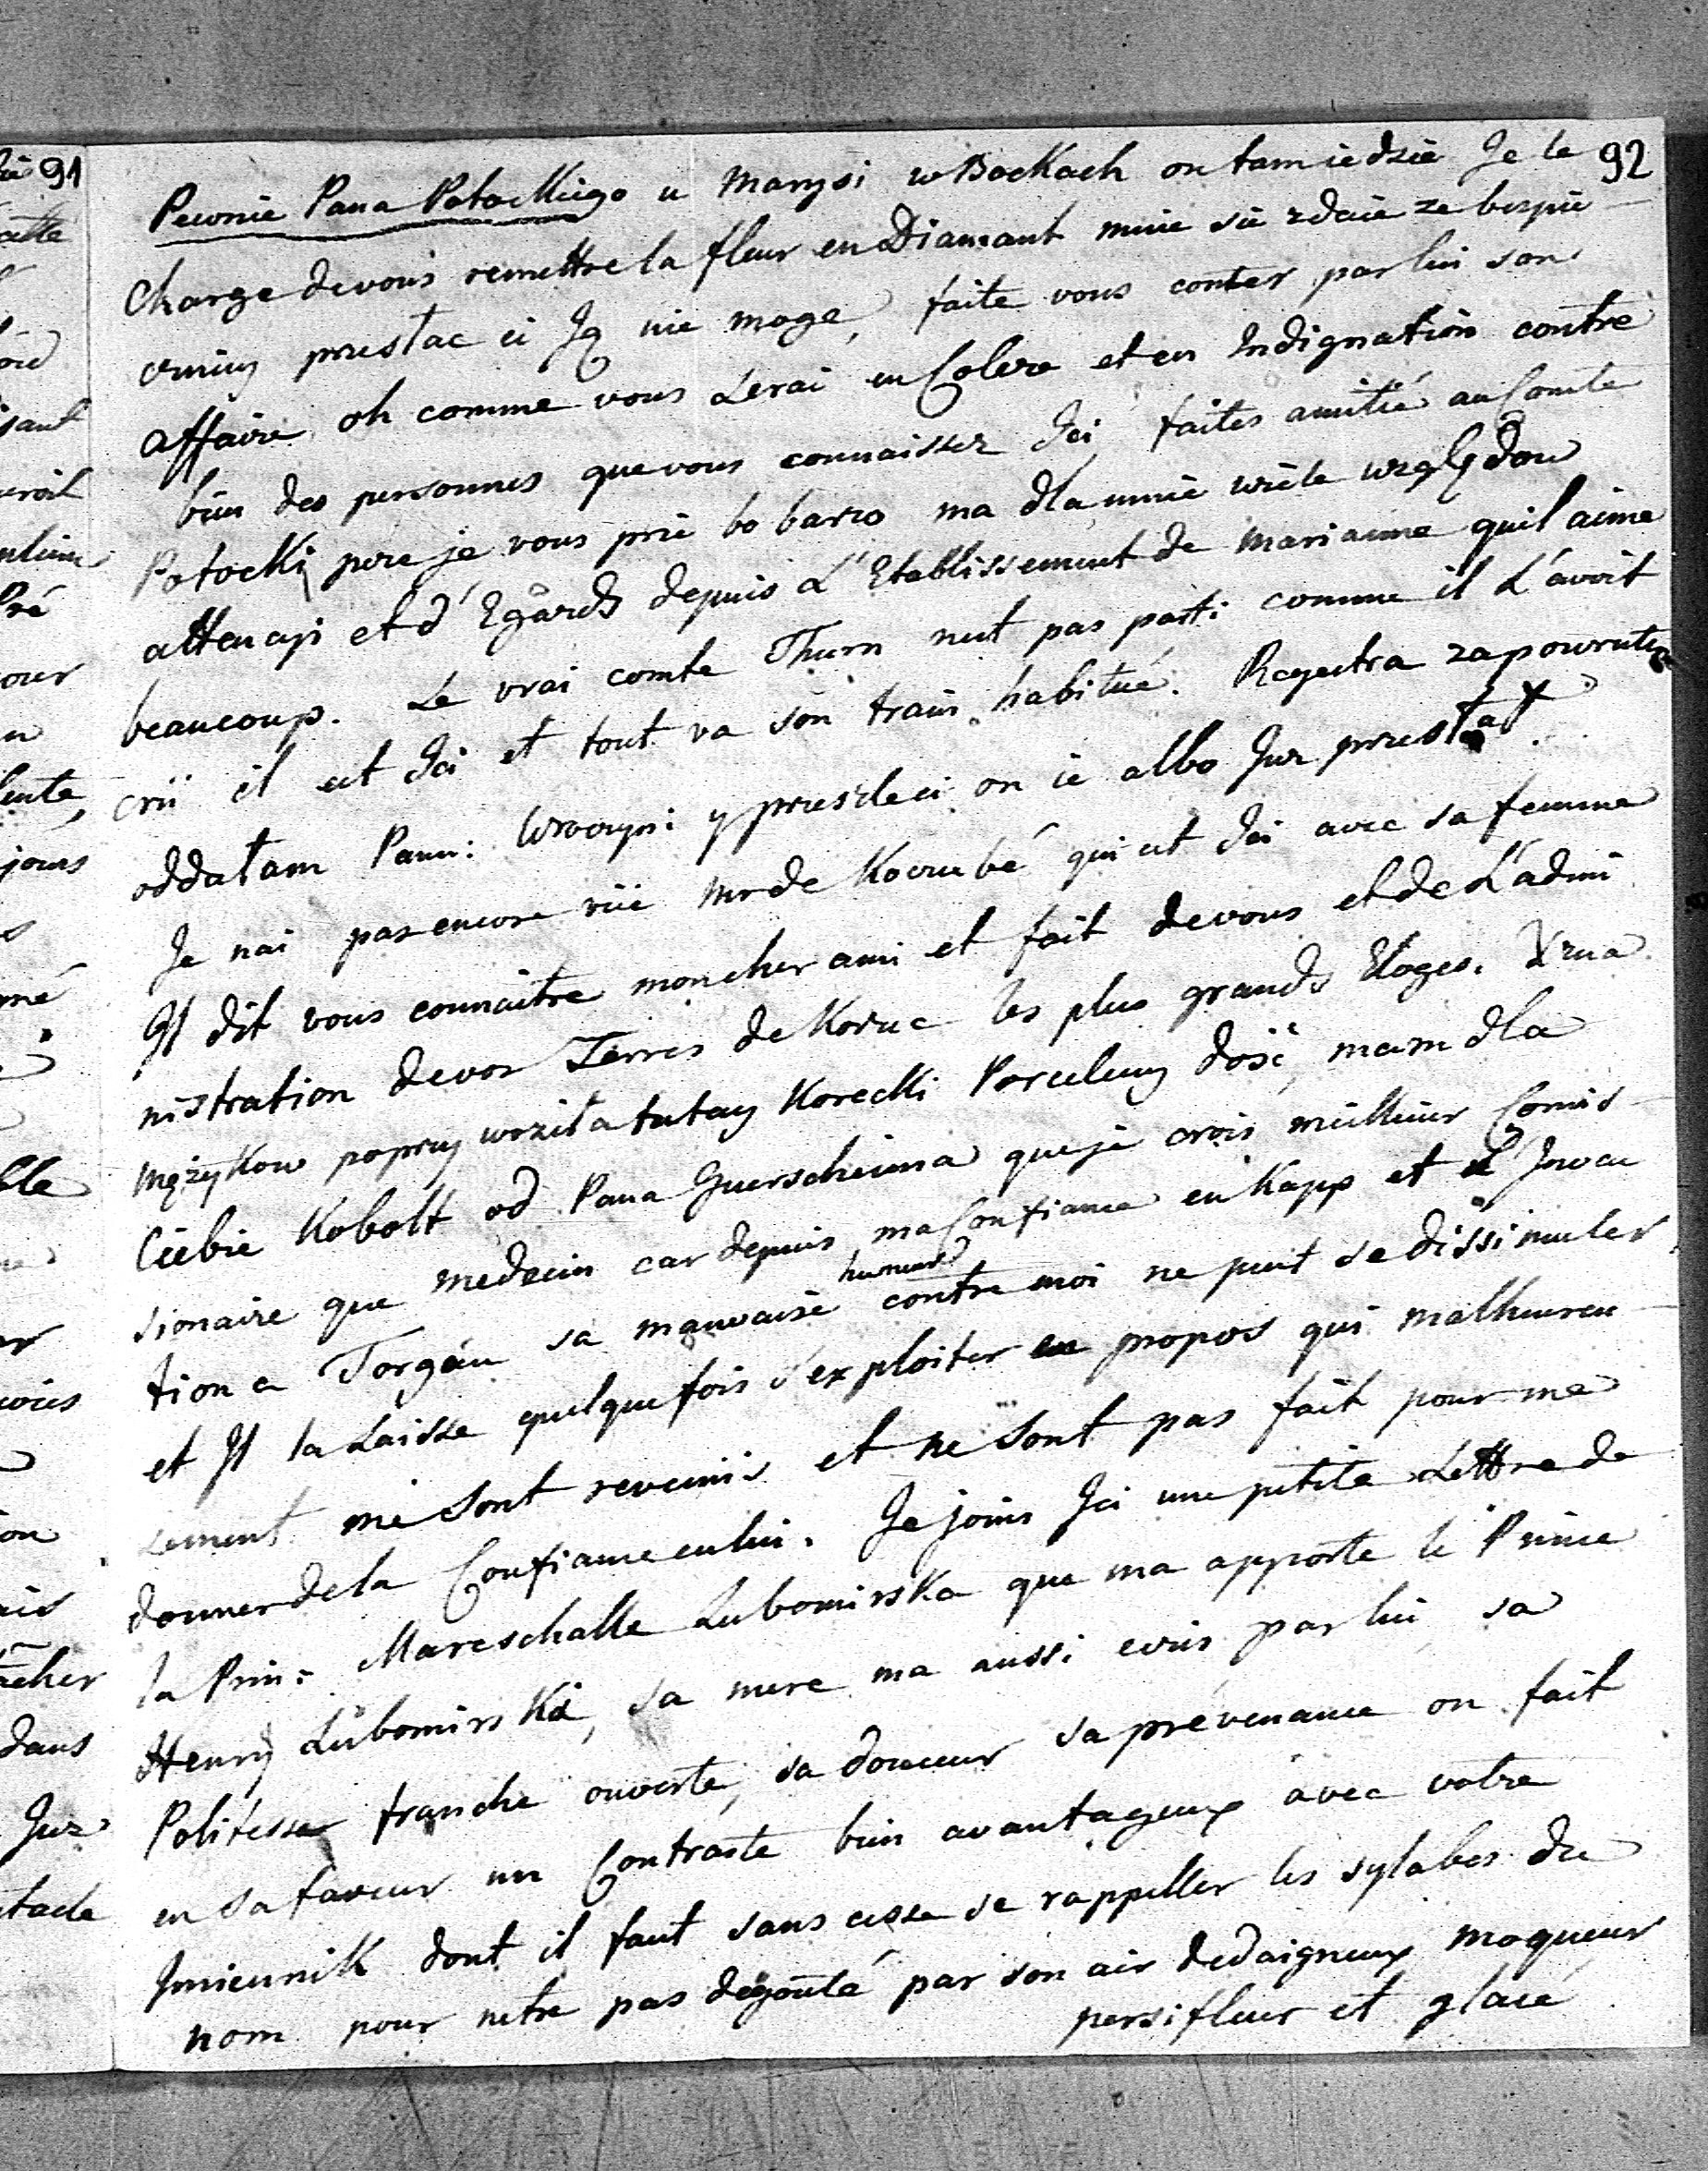 92
Pewnie Pana Potockiego u Marysi w Bockach on tam iedzie Je le
Charge de vous remettre la fleur en Diamant mnie sie zdaie ze bezpie-
czniey przestac ci Ją nie mogę, faite vous conter par lui son
affaire, oh comme vous serai en Colere et en Indignation contre
bien des personnes que vous connaissez Ici, faites amitié au Comte
Potocki pere je vous prie bo barzo ma dla mnie wiele względow
attencyi et d'Egards depuis L'Etablissement de Marianne quil aime
beaucoup. Le vrai comte Thurn nest pas parti comme il L'avoit
crû il est Ici et tout va son train habitué. Regestra za powrutem
oddałam Pann: Wrocyni y przeszle ci on ie albo Juz przestał
Je nai pas encore vüe Mr de qui est Ici avec sa femme
Il dit vous connaitre mon cher ami et fait de vous et de L'admi
nistration de vos Terres de Korzec les plus grands Eloges.
popry woziła tutay Korecki Porceleny dość, mam dla
Ciebie Kobolt od Pana Guerscheima que je crois meilleur Comis-
sionaire que medecin car depuis ma Confiance en Kapp et L'Inven
tion a Torgau sa mauvaise humeur contre moi ne peut se dissimuler
et Il la Laisse quelque fois s'exploiter en propos qui malheureu-
sement me sont revenus et ne sont pas fait pour me
donner de la Confiance en lui. Je joins Ici une petite Lettre de
la Prin: Mareschalle Lubomirska que ma apporte le Prince
Henry Lubomirski, sa mere ma aussi ecris par lui, sa
Politesse franche ouverte, sa douceur sa prévenance on fait
en sa faveur un Contraste bien avantageux avec votre
Jmiennik dont il faut sans cesse se rappeller les sylabes du
nom pour netre pas degouté par son air dedaigneux moqueur
persifleur et glacé
91